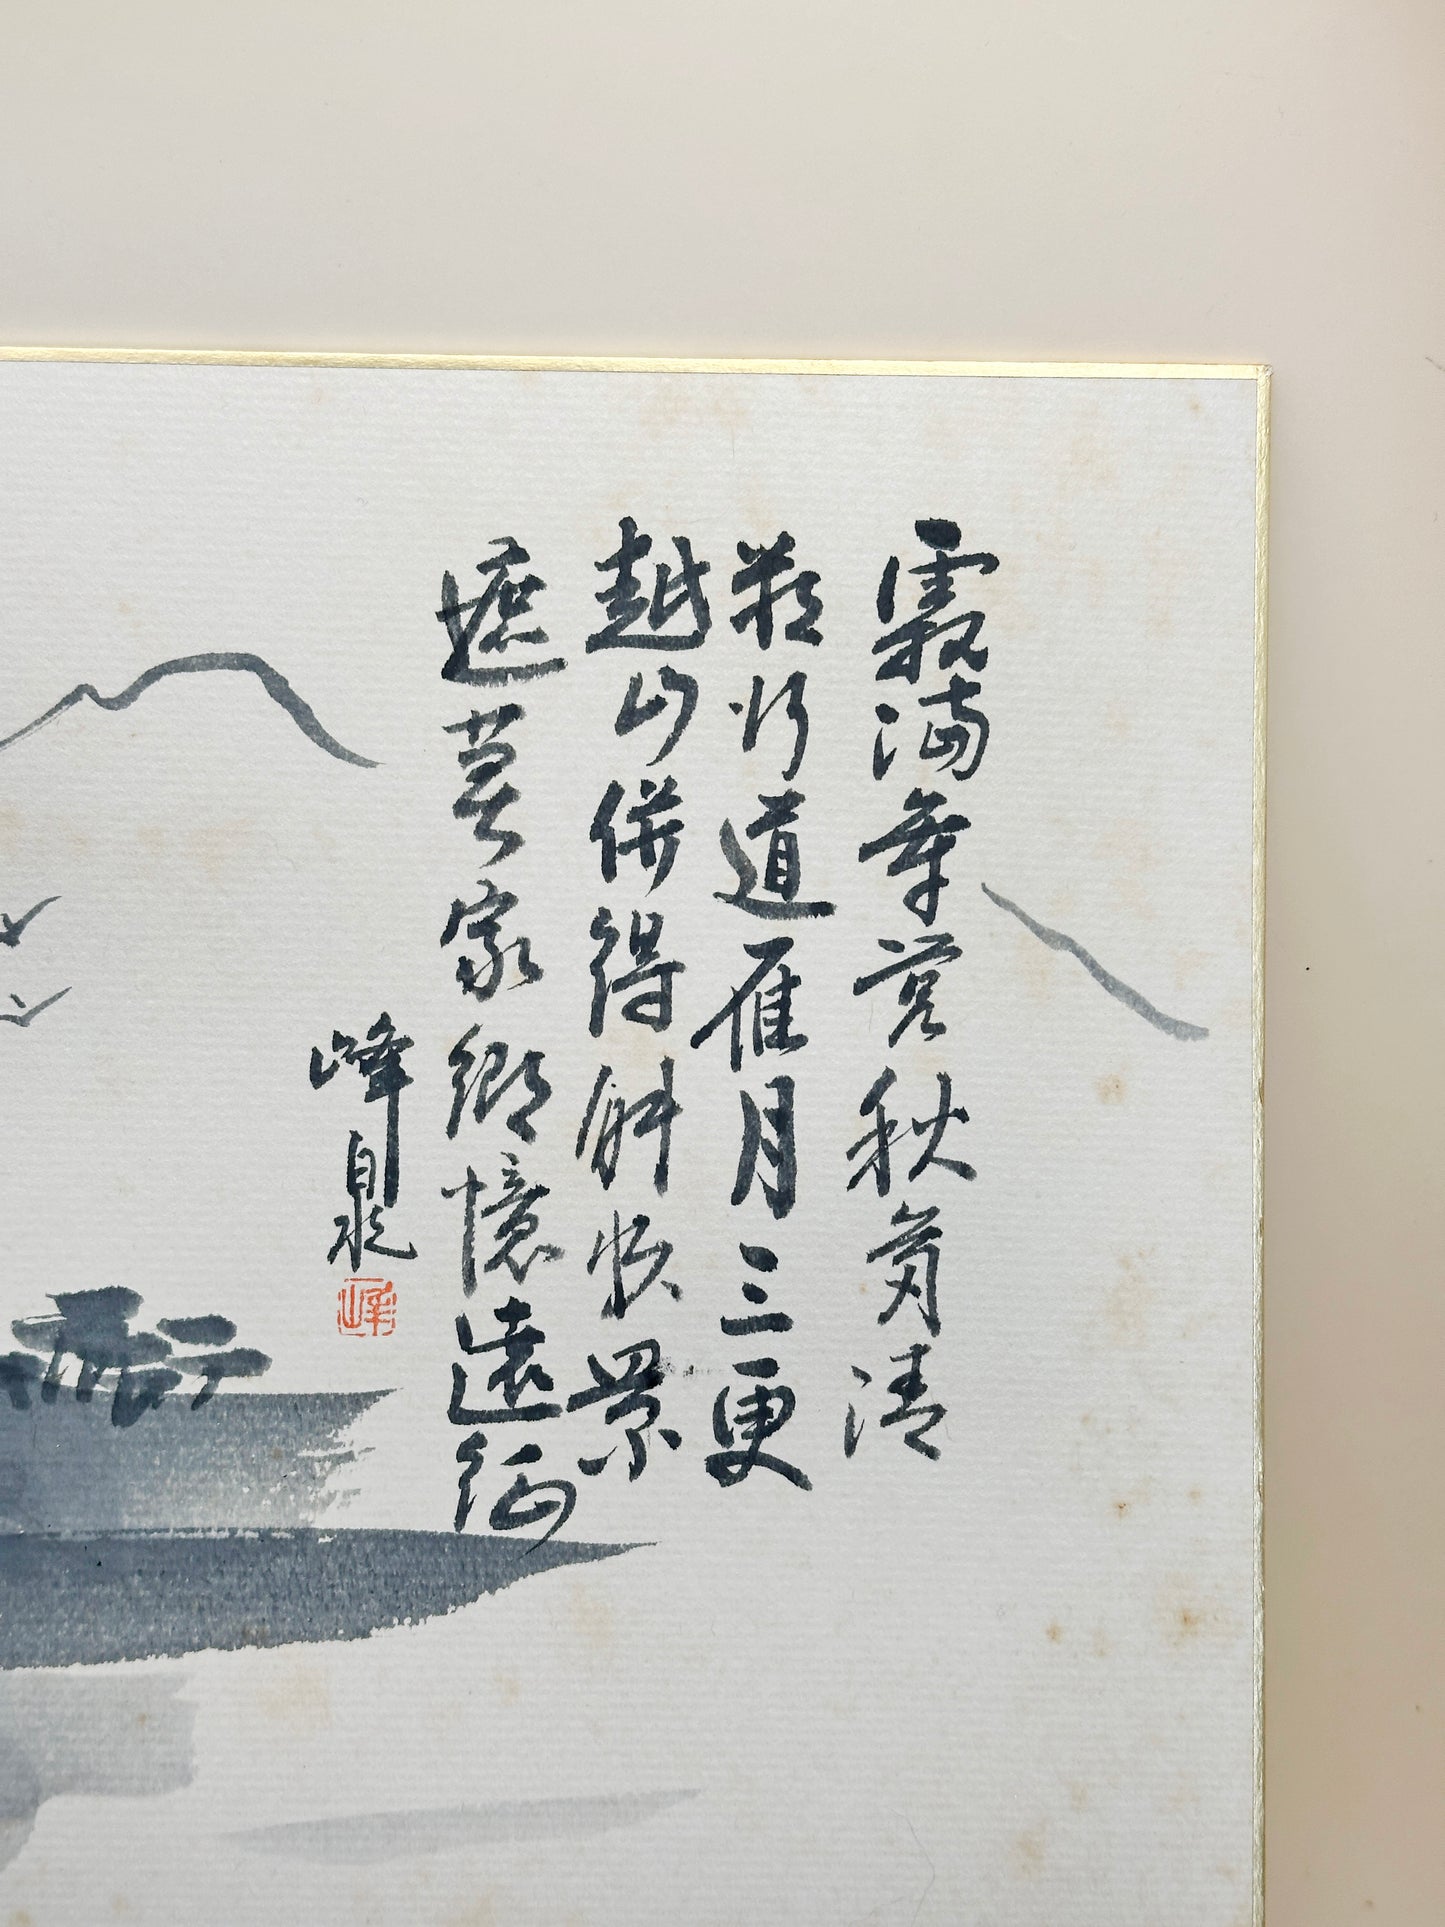 霜満軍営秋気清
数行道雁月三更
越山併得能州景
遮莫家郷憶遠征
峰泉
峰